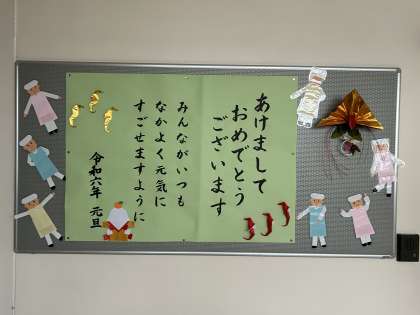 あけまして
おめでとう
ございます
みんながいつも
なかよく元気に
すごせますように
令和六年 元旦